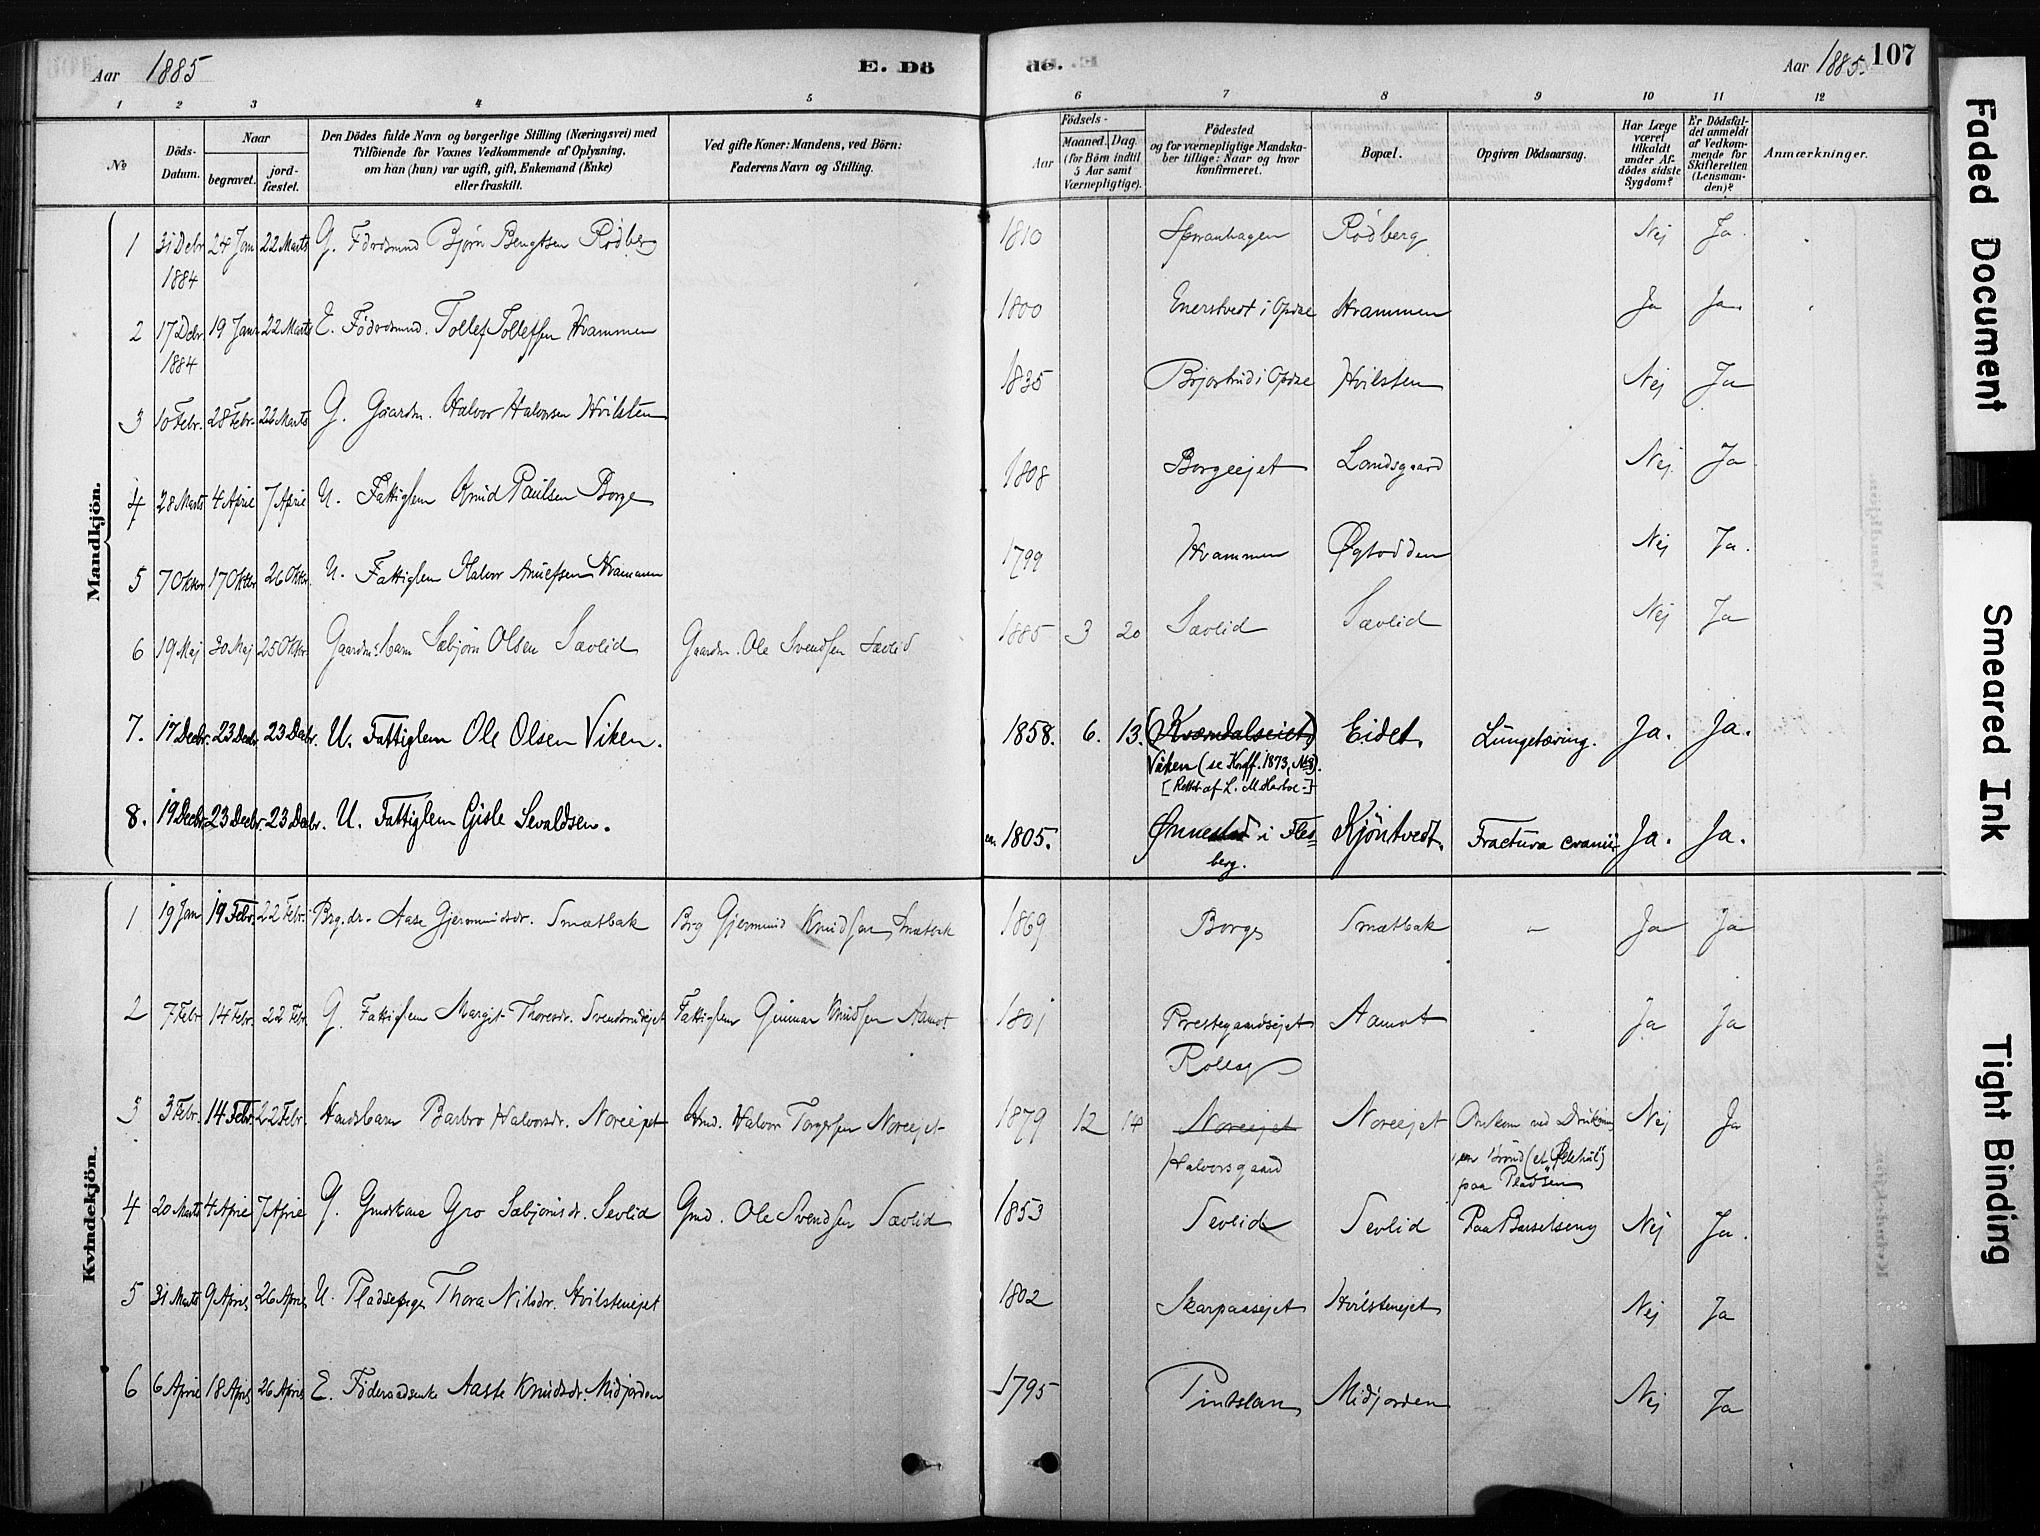 Aar 1885 E. Dö
de. Aar 1885. 107
1 2 3 4 5 6 7 8 9 10 11 12
No
Döds-Datum.
Naar
begravet.
jord-fæstet.
Den Dödes fulde Navn og borgerlige Stilling (Næringsvei) med
Tilföiende for Voxnes Vedkommende af Oplysning,
om han (hun) var ugift, gift, Enkemand (Enke)
eller fraskilt.
Ved gifte Koner: Mandens, ved Börn:
Faderens Navn og Stilling.
Födsels-
Aar
Maaned. Dag.
(for Börn indtil
5 Aar samt
Værnepligtige).
Födested
og for værnepligtige Mandska-
ber tillige: Naar og hvor
konfirmeret.
Bopæl.
Opgiven Dödsaarsag.
Har Læge
været
tilkaldt
under Af-
dödes sidste
Sygdom?
Er Dödsfal-
det anmeldt
af Vedkom-
mende for
Skifteretten
(Lensman-
den)?
Anmærkninger.
Mandkjön.
1 31 Debr 1884 24 Jan 22 Marts G. Födrdsmd Bjørn Bengtsen Rødberg 1810 Rødberg Nej Ja.
2 17 Debr 1884 19 Janr 22 Marts E. Födrdsmd. Tollef Tollefsen Hvammen 1800 Enerstvedt i Opdae Hvammen Ja Ja.
3 10 Febr. 28 Febr. 22 Marts G. Gaardm. Halvor Halvorsen Hvilsten 1835 i Opdae Hvilsten Nej Ja
4 28 Marts 4 April 7 April U. Fattiglem Knud Paulsen Borge 1808 Borgeejet Landsgaard Nej Ja
5 7 Oktbr 17 Oktbr 26 Oktbr U. Fattiglem Halvor Hvammen 1799 Hvammen Øgtodden Nej Ja.
6 19 Maj 30 Maj 25 Oktbr Gaardm. barn Sæbjørn Olsen Sævlid Gaardm. Ole Svendsen Sævlid 1885 3 20 Sævlid Sævlid Nej Ja
7. 17 Decbr. 23 Decbr. 23 Decbr. U. Fattiglem Ole Olsen Viken. 1858. 6. 13. (Kværndalseiet) Eidet. Lungetæring. Ja. Ja.
Viken (se Konff. 1873, No 8).
[Rettet af L. M. Harboe-]
8. 19 Decbr. 23 Decbr. 23 Decbr. U. Fattiglem Gisle Sevaldsen. ca. 1805. Ønnestad i Fles=
berg. Kjöntvedt. Fractura cranii. Ja. Ja.
Kvindekjön.
1 19 Jan 19 Febr. 22 Febr. Brg. dr. Aase Gjermundsdr. Smætbak Brg Gjermund Knudsen Smætbak 1869 Borge Smætbak - Ja Ja
2 7 Febr 14 Febr. 22 Febr. G. Fattiglem Margit Thoresdr. Svendsrudejet Fattiglem Gunnar Knudsen Aamot 1801 Prestegaardsejet
Rollag Aamot Ja Ja
3 3 Febr. 14 Febr. 22 Febr. Barbro Halvorsdr. Noreejet Hmd. Halvor Torgersen Noreejet 1879 12 14 Noreejet
Halvorsgaard Noreejet Omkom ved Drukning
i en Brønd (et "Pelehul")
paa Pladsen Nej Ja
4 20 Marts 4 April 7 April G. Gmdskone Gro Sæbjørnsdr. Sevlid Gmd. Ole Svendsen Sævlid 1853 Sevlid Sevlid Paa Barselseng Nej Ja.
5 31 Marts 9 April 26 April U. Pladsepige Thora Nilsdr. Hvilstenejet 1802 Skarpaasejet Hvilstenejet Nej Ja
6 6 April 18 April 26 April E. Föderaadsenke Aaste Knudsdr. Midjorden 1795 Midjorden Nej Ja
Faded Document
Smeared Ink
Tight Binding